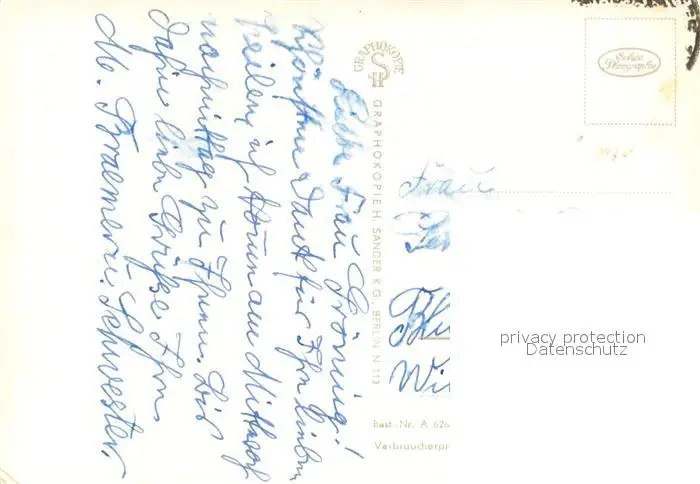 Liebe Frau Gröning!
Schönsten Dank für Ihre lieben
Zeilen, ich komme am Mittwoch
nachmittag zu Ihnen. Bis
dahin liebe Grüße Ihre
M. u. Schwester.
GRAPHOKOPIE
GRAPHOKOPIE H. SANDER K.G., BERLIN N 113
Echte Photographie
Frau
Best.-Nr. A 626
Verbraucherpr
privacy protection
Datenschutz